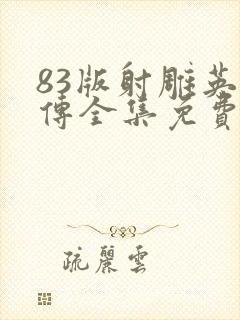 83版射雕英
傅全集免費
疏麗雲